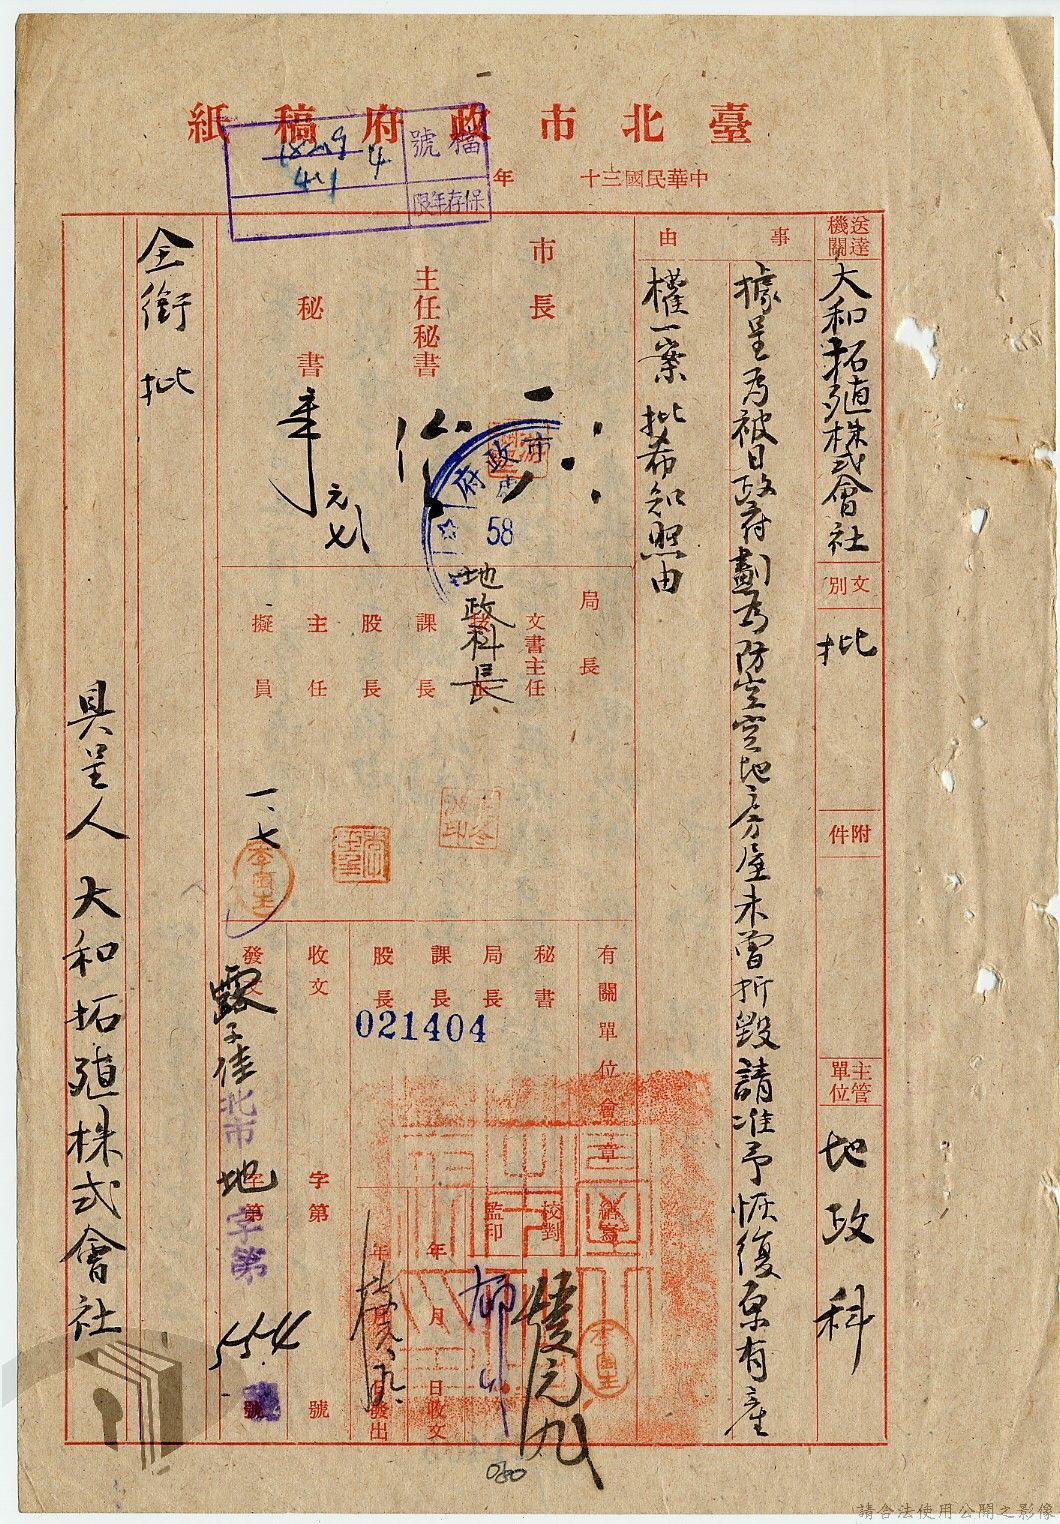 臺北市政府稿紙
中華民國三十 年
檔號
4
441
保存年限
送達機關
大和拓殖株式會社
文別
批
附件
主管單位
地政科
事由
據呈為被日政府劃為防空空地房屋未曾折毀請准予恢復原有產
權一案批希知照由
市長
主任秘書
秘書
元
市政府
58
局長
文書主任
地政科長
課長
股長
主任
擬員
一、七
有關單位會章
秘書
局長
課長
股長
021404
繕寫
校對
監印
元九
年 月 日收文
年 月 日發出
收文 字第 號
發文 字第 號
北市地字第
554
號
全銜 批
具呈人 大和拓殖株式會社
080
請合法使用公開之影像